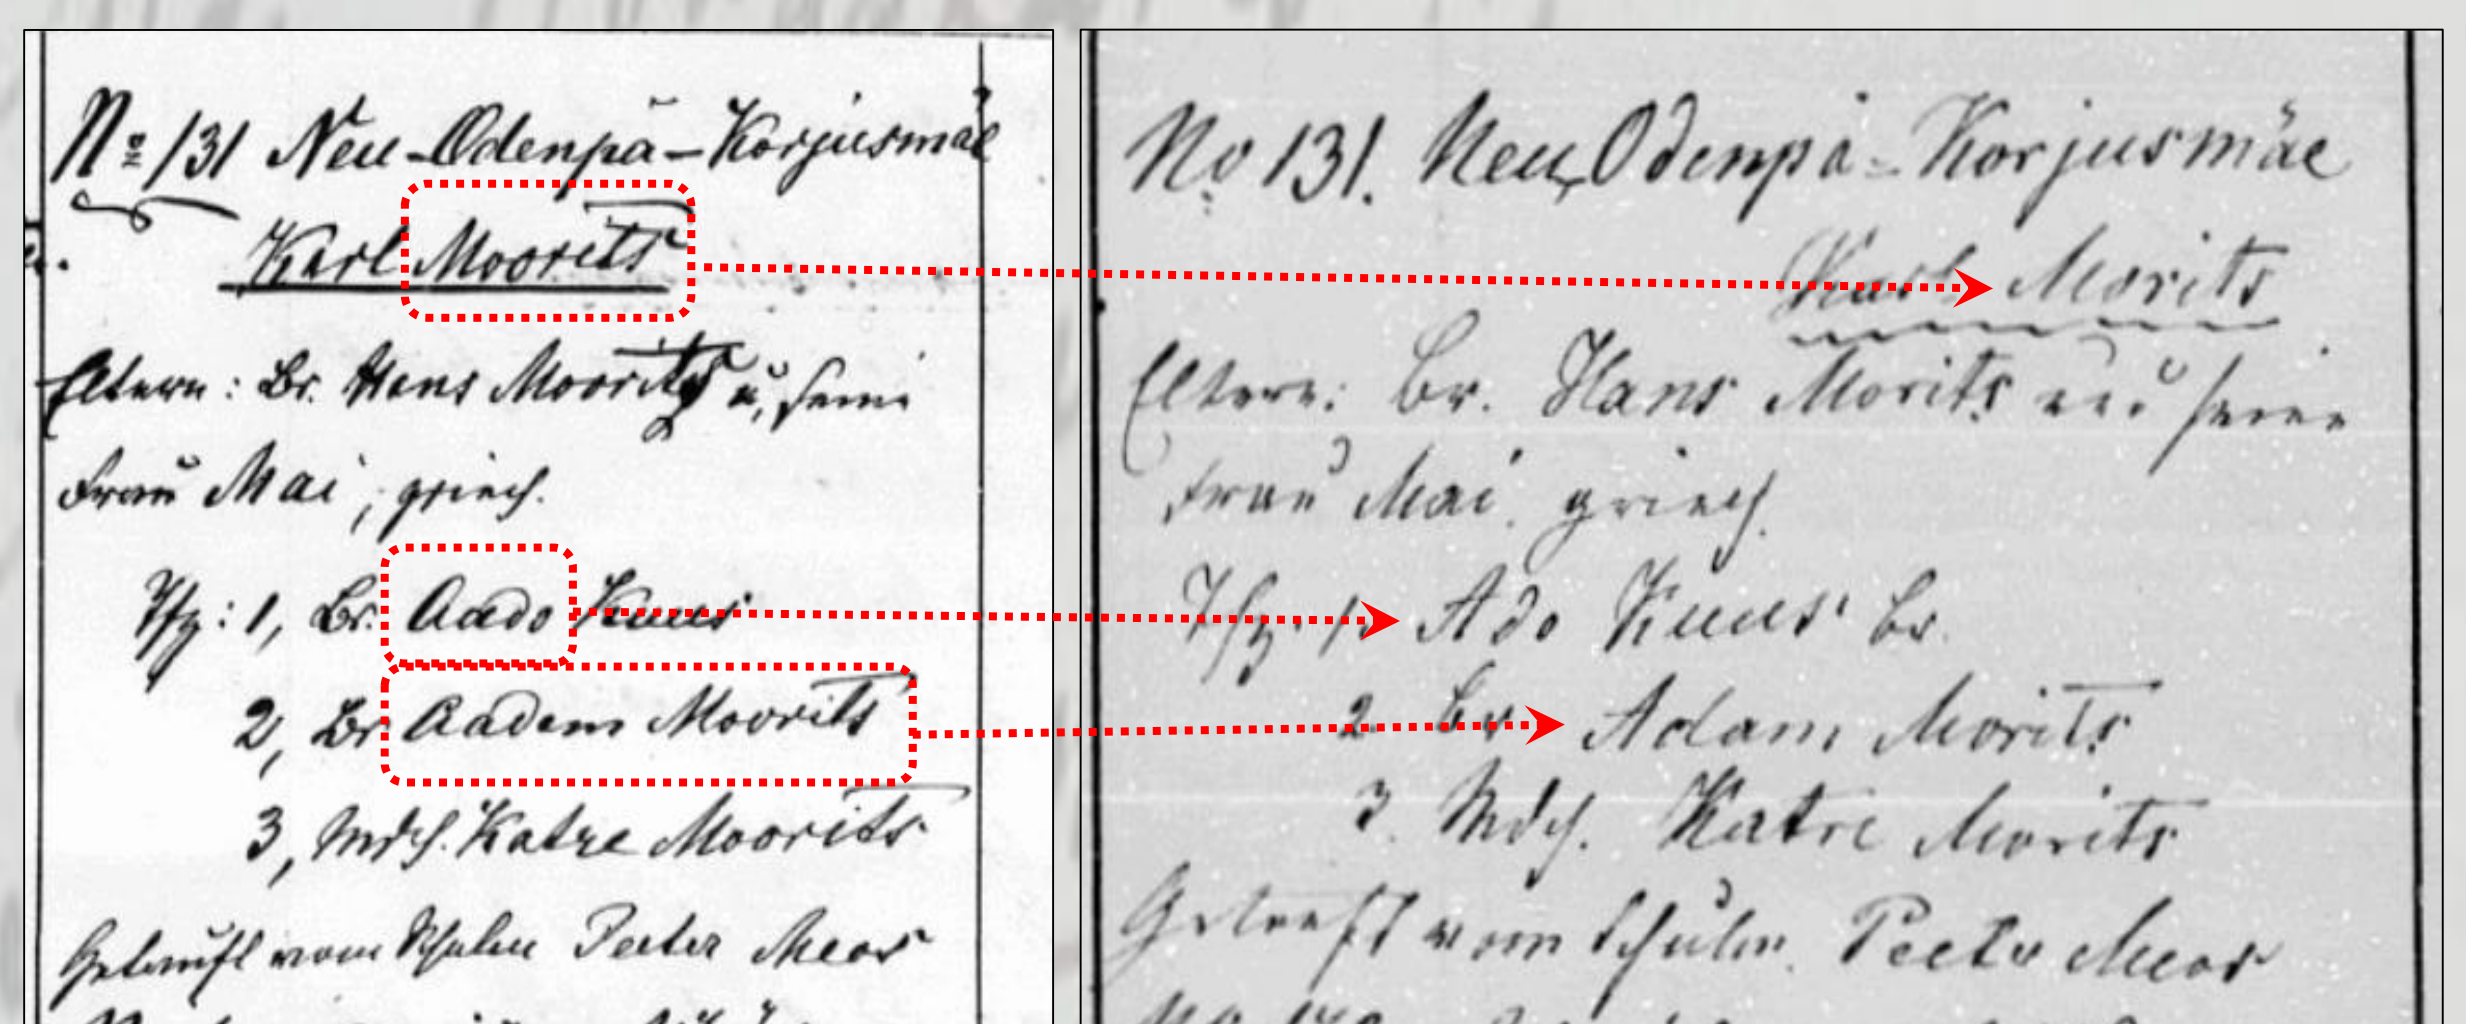 No 131 Neu-Odenpä-Korjusmäe
Karl Moorits
Eltern: Br. Hans Moorits u. seine
Frau Mai, griech.
Tfz: 1, Br. Aado Kuus
2, Br Aadam Moorits
3, Mdch. Katre Moorits
Getauft vom Schulm Peeter Meos
No 131. Neu-Odenpä-Korjusmäe
Karl Morits
Eltern: Br. Hans Morits und seine
Frau Mai. griech.
Tfz. 1. Ado Kuus Br.
2. Br. Adam Morits
3. Mdch. Katre Morits
Getauft vom Schulm. Peeter Meos